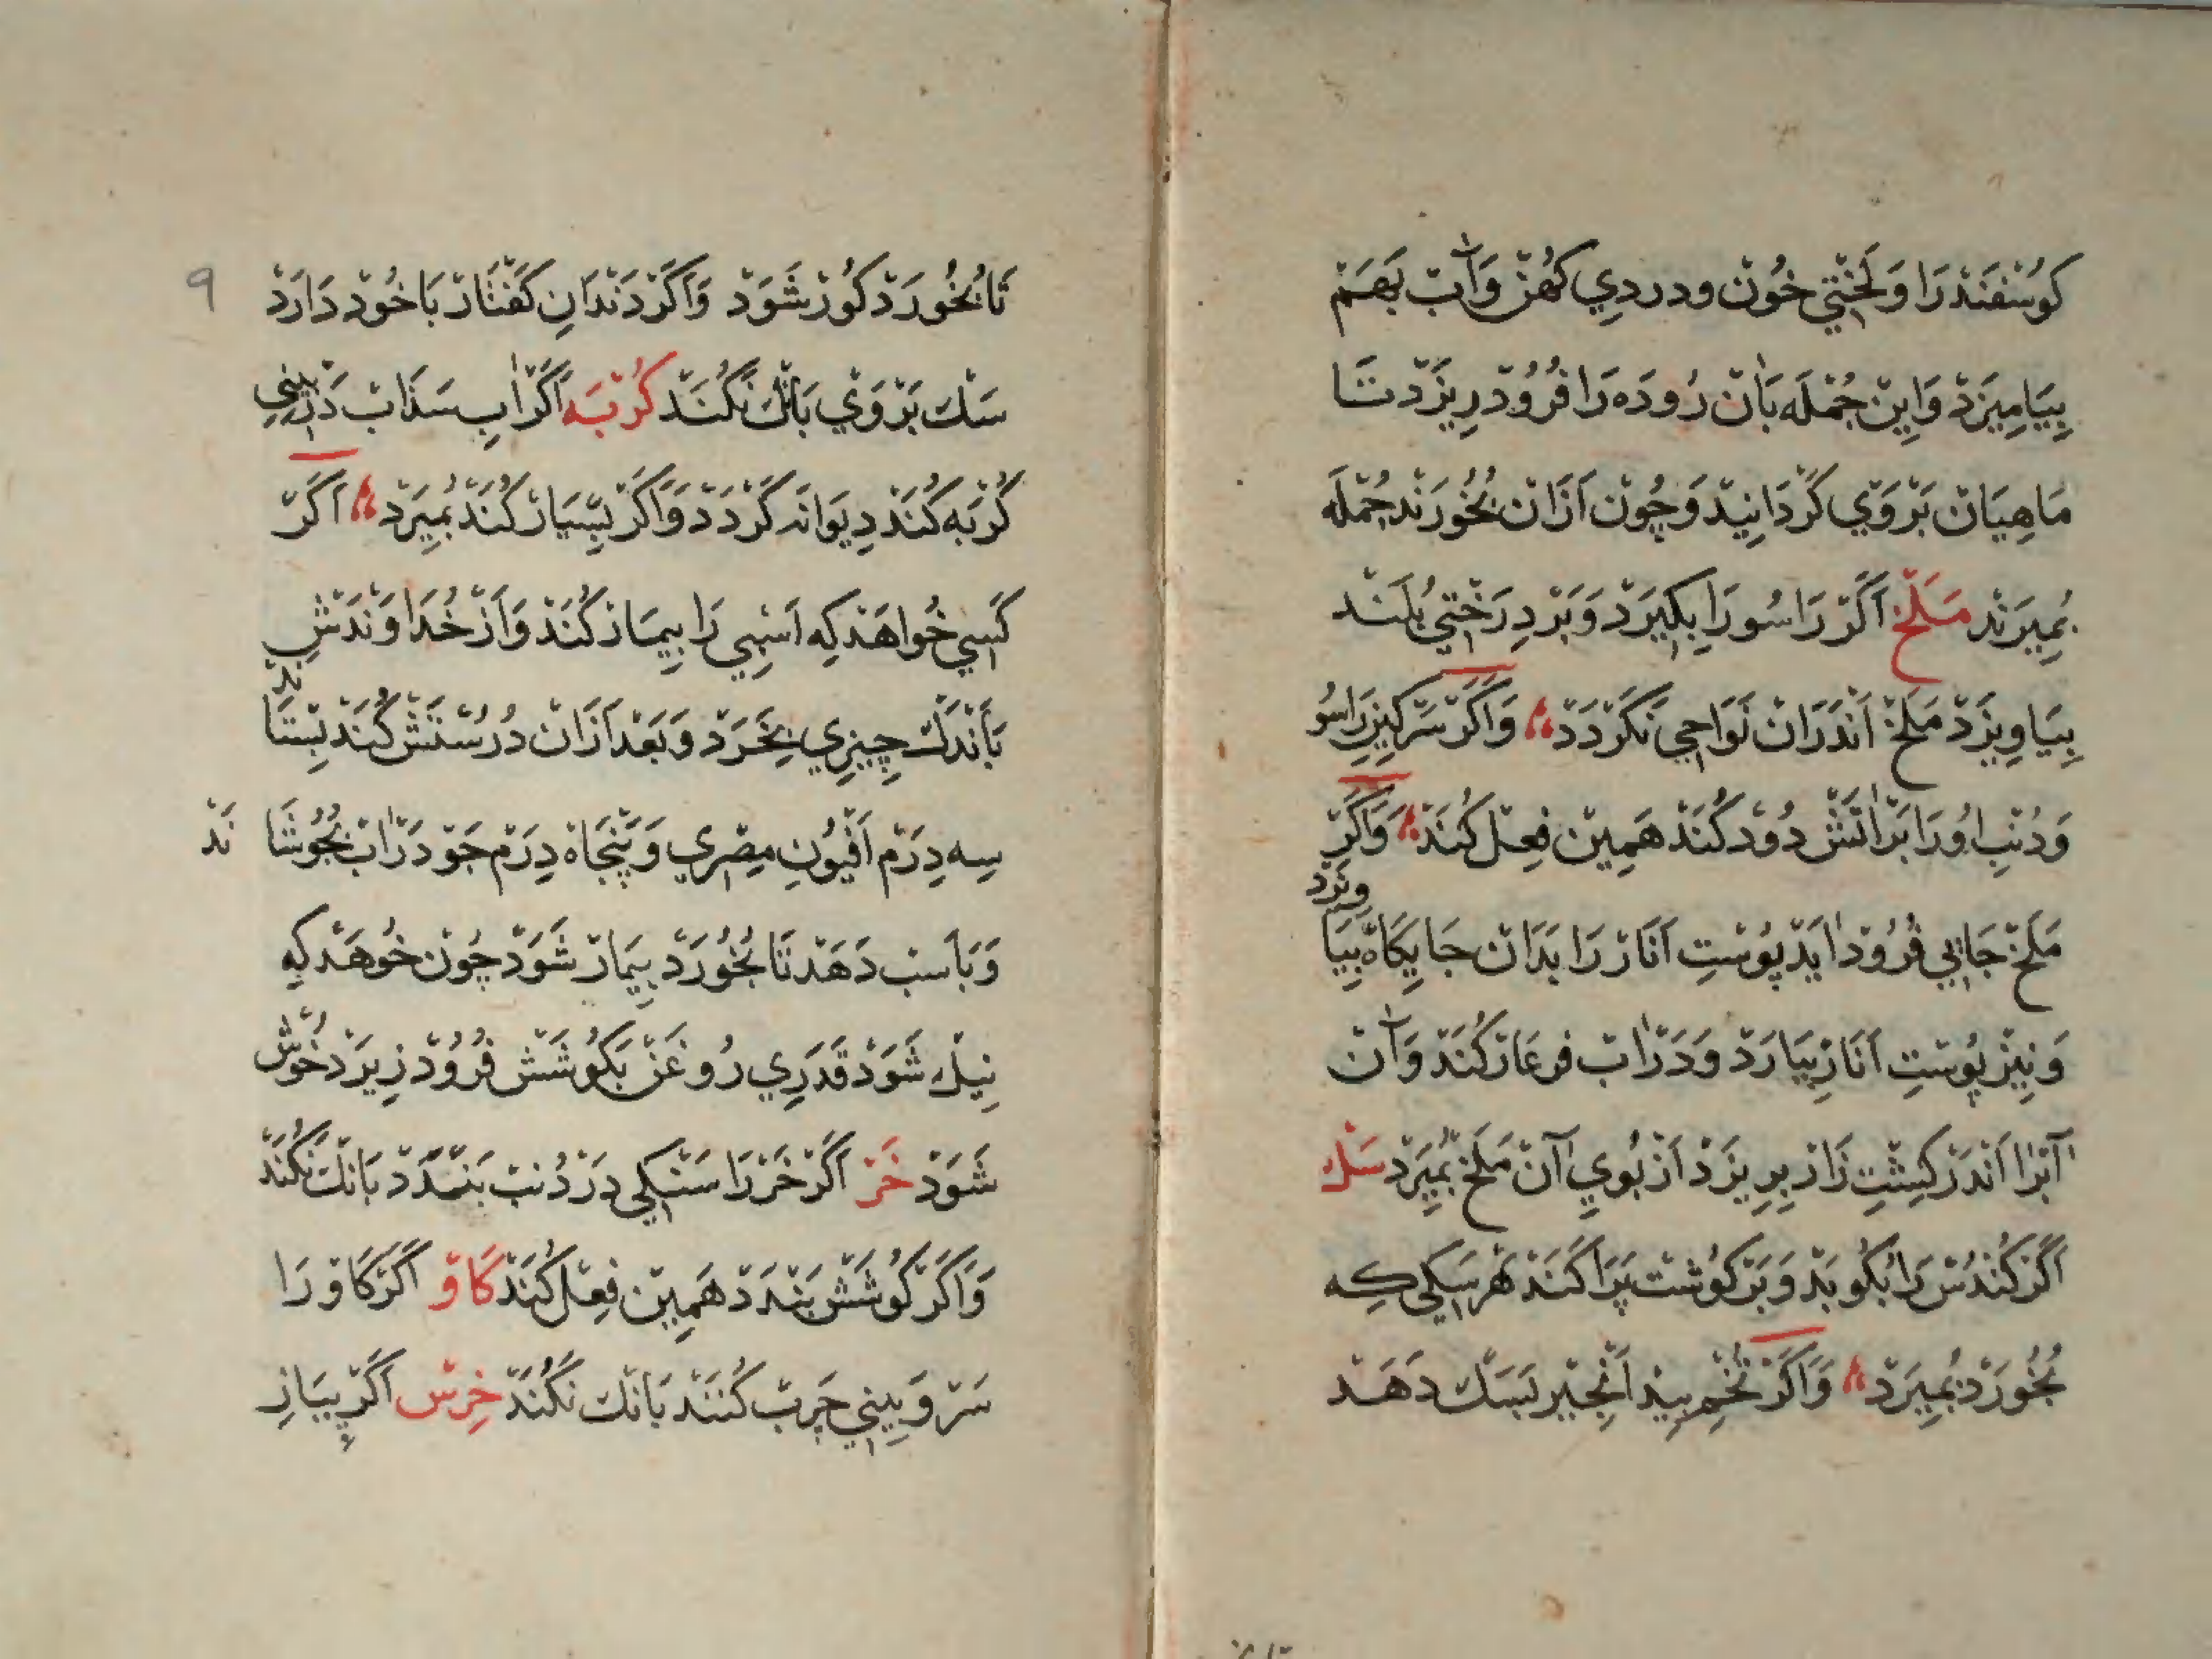 كوُسْفَنْدْ رَا وَ لَخْتِي خُونْ ودردِي كُهُنْ وَآبْ بَهَمْ
بِيَامِيزَدْ وَاِينْ جُمْلَه بَانْ رُودَه رَا فُرُودْ رِيزَدْ تَا
مَاهِيَانْ بَرْ وَيْ كَرْدَانِيدْ وَچُونْ اَزَانْ بُخُورَنْد جُمْلَه
بُمِيرَنْد مَلَخْ اَكَرْ رَاسُو رَا بِكِيرَدْ وَبَرْ دِرَخْتِي بُلَنْد
بِيَاوِيزَدْ مَلَخْ اَنْدَرَانْ نَوَاحِي نَكَرْدَدْ وَاَكَرْ سَركِينِ رَاسُو
وَدُنْبِ اُو رَا بَرْ آتَشْ دُودْ كُنَدْ هَمِينْ فِعِلْ كُنَدْ وَاَكَرْ
مَلَخْ جَايِي فُرُودْ آيَدْ پُوسْتِ اَنَارْ رَا بَدَانْ جَايِكَاهْ بِيَا ويزد
وَنِيزْ پُوسْتِ اَنَارْ بِيَارَدْ وَدَرْ آبْ فرغَارْ كُنَدْ وَآنْ
آبْرَا اَنْدَرْ كِشْتِ زَارْ بِرِيزَدْ اَزْ بُويِ آنْ مَلَخْ بُمِيرَدْ سَكْ
اَكَرْ كُنْدُسْ رَا بُكُوبَدْ وَبَرْ كوُشْتْ پَرَاكَنَدْ هَرْ سَكِي كِه
بُخُورَدْ بُمِيرَدْ وَاَكَرْ تُخْمِ بِيدْ اَنْجِيرْ بَسَكْ دَهَدْ
٩
تَا بُخُورَدْ كُورْ شَوَدْ وَاَكَرْ دَنْدَانِ كَفْتَارْ بَا خُودْ دَارَدْ
سَكْ بَرْ وَيْ بَانْكْ نَكُنَدْ كُرْبَه اَكَرْ آبِ سَدَابْ دَرْ بِينِي
كُرْبَه كُنَدْ دِيوَانَه كَرْدَدْ وَاَكَرْ بِسْيَارْ كُنَدْ بُمِيرَدْ اَكَرْ
كَسِي خُواهَدْ كِه اَسْبِي رَا بِيمَارْ كُنَدْ وَاَزْ خُدَاوَنْدَشْ
بَاَنْدَكْ چِيزِي بِخَرَدْ وَبَعْد اَزَانْ دُرُسْتَشْ كُنَدْ بِسْتَا ند
سِه دِرَمْ اَفْيُونِ مِصْرِي وَپَنْجَاهْ دِرَمْ جَوْ دَرْ آبْ بُجُوشَا نَدْ
وَبَاَسبْ دَهَدْ تَا بُخُورَدْ بِيمَارْ شَوَدْ چُونْ خُوهَدْ كِه
نِيكْ شَوَدْ قَدَرِي رُوغَنْ بَكُوشَشْ فُرُودْ رِيزَدْ خُوشْ
شَوَدْ خَرْ اَكَرْ خَرْ رَا سَنْكِي دَرْ دُنبْ بَنْدَدْ بَانْكْ نَكُنَدْ
وَاَكَرْ كُوشَشْ بَنْدَدْ هَمِينْ فِعِلْ كُنَدْ كَاوْ اَكَرْ كَاوْ رَا
سَرْ وَبِينِي چَرْبْ كُنَنْدْ بَانْكْ نَكُنَدْ خِرْسْ اَكَرْ پِيَازِ